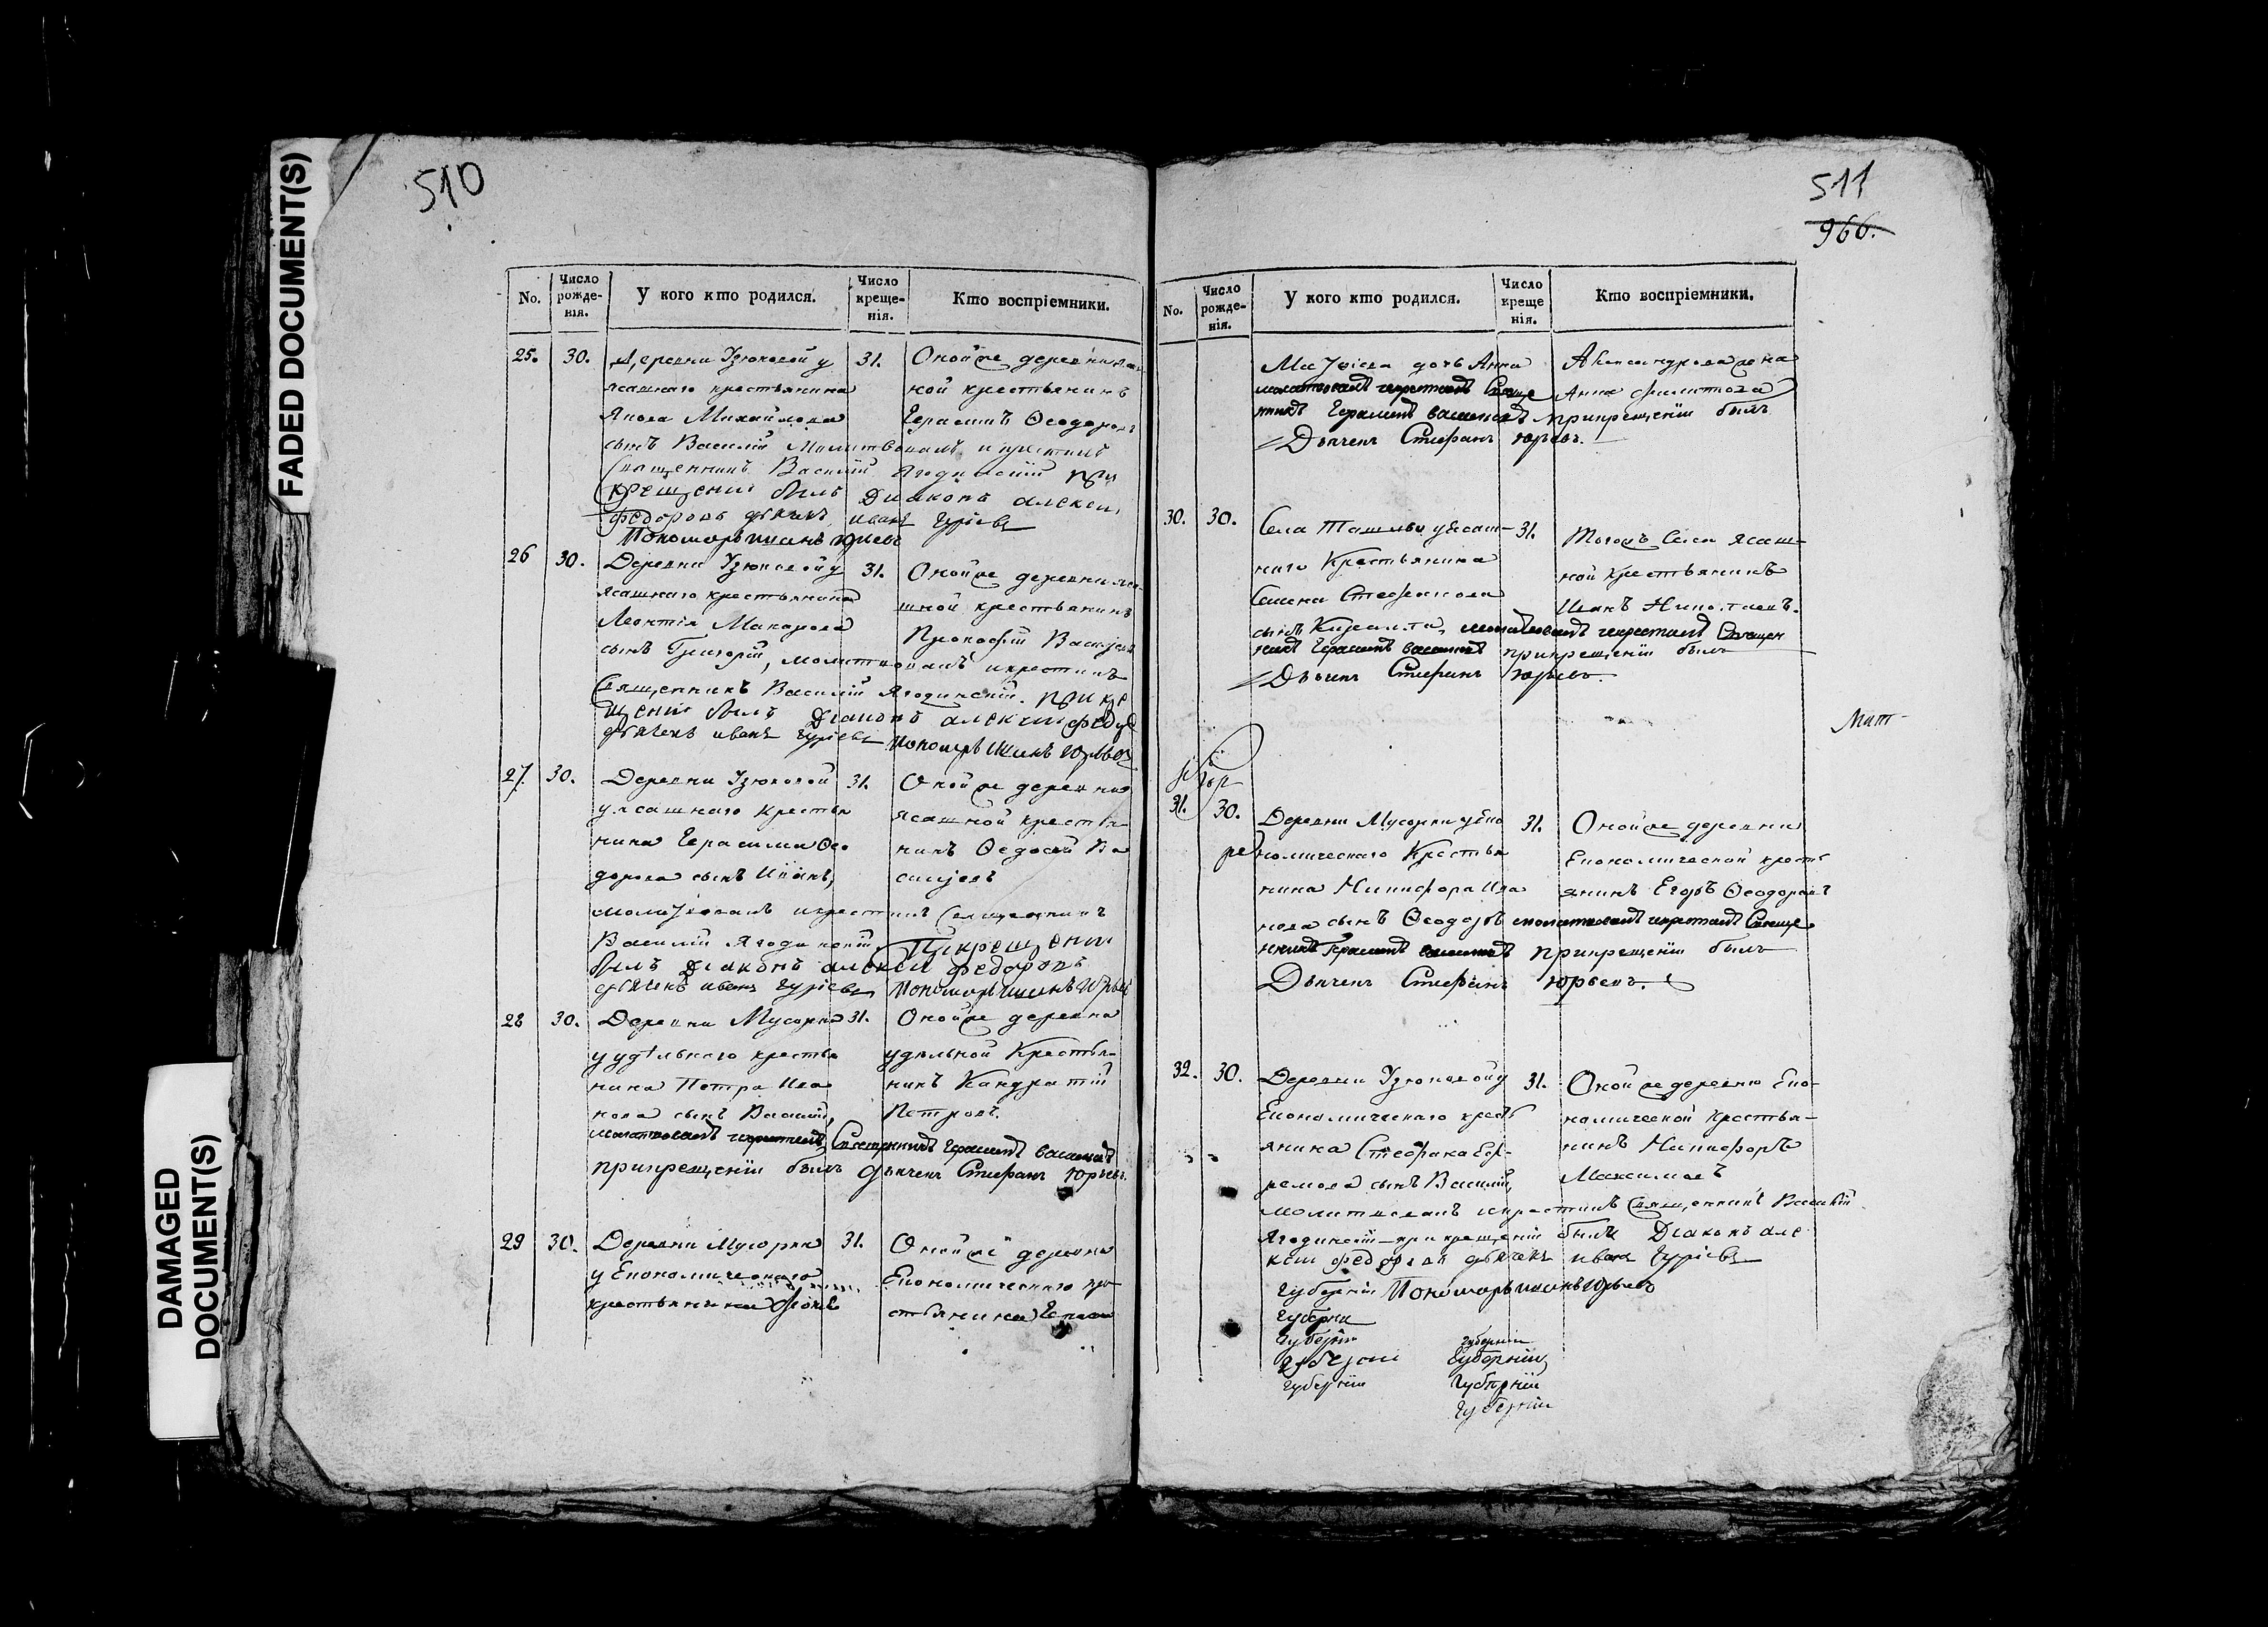 FADED DOCUMENT(S)
DAMAGED DOCUMENT(S)
510
No.
Число рожде-нія.
У кого кто родился.
Число креще-нія.
Кто воспріемники.
25. 30.
Деревни Узюковой у
ясашнаго крестьянина
Якова Михайлова
сынъ Василій Молитвовалъ и крестилъ
Священникъ Василій Ягодинскій при
крещеніи былъ Диаконъ алексеи
федоровъ дьячекъ иванъ Гурiевъ
31.
Онойже деревни
ной крестьянинъ
Герасимъ Ѳеодоровъ
26 30.
Деревни Узюковой у
ясашнаго крестьянина
Леонтія Макарова
сынъ Григорій, молитвовалъ и крестилъ
Священникъ Василій Ягодинскій. при кре
щеніи былъ Диаконъ алексеи
дьячекъ иванъ Гурiевъ
31.
Онойже деревни яса-
шной крестьянинъ
Прокофій Васильевъ
27. 30.
Деревни Узюковой
у ясашнаго крестья
нина Герасима Ѳео
дорова сынъ Иванъ,
молитвовалъ и крестилъ Священникъ
Василій Ягодинскій При крещеніи
былъ Диаконъ алексеи федоровъ
дьячекъ иванъ Гурiевъ
31.
Онойже деревни
ясашной крестья-
нинъ Ѳедосей Ва
сильевъ
28 30.
Деревни Мусорки
у удѣльнаго крестья
нина Петра Ива
нова сынъ Василій,
молитвовалъ и крестилъ Священникъ Герасимъ
прикрещеніи былъ дьячекъ Стефанъ Юрьевъ.
31.
Онойже деревни
удѣльной Крестья-
нинъ Кандратій
Петровъ.
29 30.
Деревни Мусорки
у Економическаго
крестьянина
31.
Онойже деревни
Економическаго кре-
стьянина
511
966.
No.
Число рожде-нія.
У кого кто родился.
Число креще нія.
Кто воспріемники.
дочь Анна
молитвовалъ и крестилъ Свяще
нникъ Герасимъ прикрещеніи былъ
Дьячекъ Стефанъ Юрьевъ.
Александрова жена
Анна Филиппова
30. 30.
Села Ташлы у Ясаш-
наго Крестьянина
Семена Стефанова
сынъ молитвовалъ и крестилъ Священ
никъ Герасимъ прикрещеніи былъ
Дьячекъ Стефанъ Юрьевъ.
31.
Тогожъ Села Ясаш-
ной Крестьянинъ
Иванъ Николаевъ.
31. 30.
Деревни Мусорки у Еко
номическаго Крестья
нина Никифора Ива
нова сынъ Ѳеодоръ молитвовалъ и крестилъ Свяще
нникъ Герасимъ прикрещеніи былъ
Дьячекъ Стефанъ Юрьевъ.
31.
Онойже деревни
Економической крестъ
янинъ Егоръ Ѳеодоровъ
32. 30.
Деревни Узюковой у
Економическаго крестъ
янина Стефана Еф-
ремова сынъ Василій,
молитвовалъ и крестилъ Священникъ Василій
Ягодинскій при крещеніи былъ Диаконъ але
ксеи федоровъ дьячекъ иванъ Гурiевъ
31.
Онойже деревни Еко-
номической Крестья-
нинъ Никифоръ
Максимовъ
Губерніи
Губерни
Губерніи
Губерніи
Губерніи
Губерніи
Губерніи
Губерніи
Губерніи